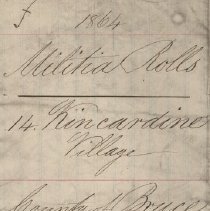 1864
Militia Rolls
14. Kincardine
Village
County of Bruce